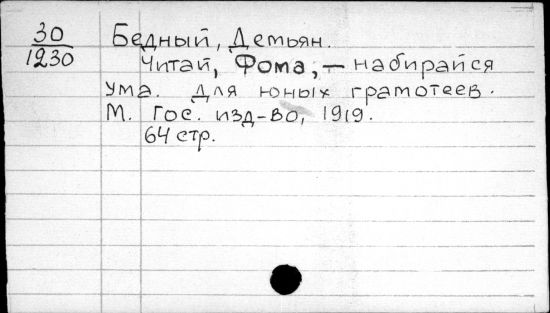 30
1230
Бедный, Демьян.
Читай, Фома, — набирайся
ума. Для юных грамотеев.
М. Гос. изд-во, 1919.
64 стр.